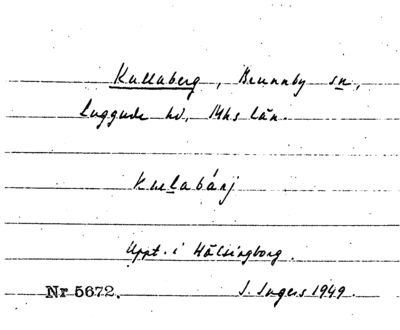 Kullaberg, Brunnby sn,
Luggude hd, Mhs län.
Kulabárj
Uppt. i Hälsingborg.
Nr 5672. I. Ingers 1949.